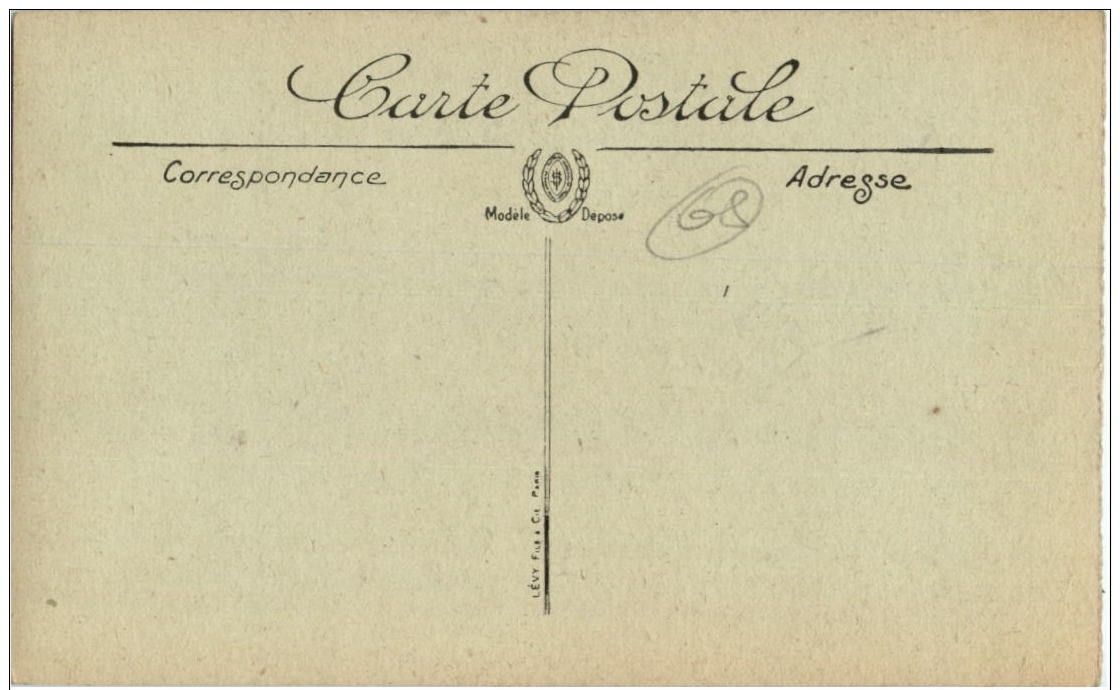 Carte Postale
Correspondance
Adresse
Modèle Deposé
68
LÉVY FILS & CIE PARIS